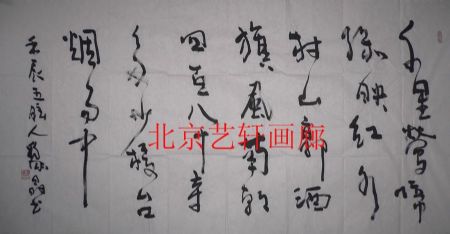 千里莺啼
绿映红水
村山郭酒
旗風南朝
四百八十寺
多少楼台
烟雨中
壬辰
北京艺轩画廊